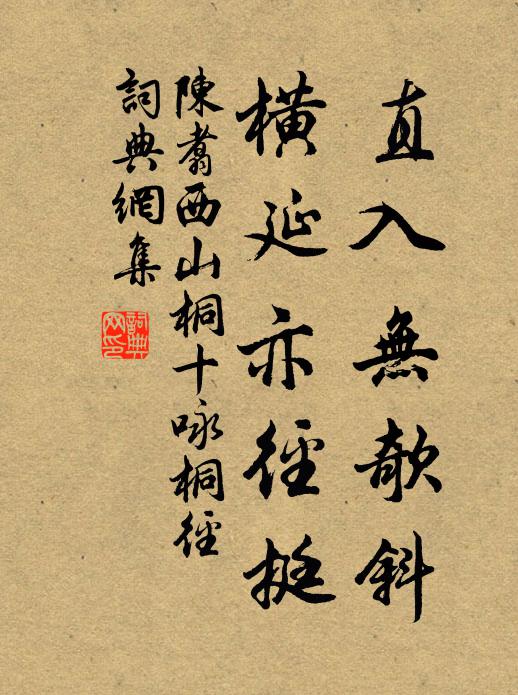 直入無欹斜
橫延亦徑挺
陳翥西山桐十咏桐徑
詞典網集
詞典
网印